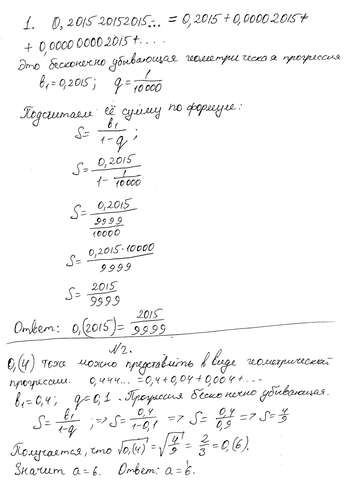 1. 0,201520152015... = 0,2015 + 0,00002015 +
+ 0,000000002015 + ....
Это бесконечно убывающая геометрическая прогрессия
b₁ = 0,2015; q = 1/10000
Подсчитаем её сумму по формуле:
S = b₁/(1-q);
S = 0,2015/(1 - 1/10000)
S = 0,2015/(9999/10000)
S = 0,2015·10000/9999
S = 2015/9999
Ответ: 0,(2015) = 2015/9999
№2.
0,(4) тоже можно представить в виде геометрической
прогрессии. 0,444... = 0,4 + 0,04 + 0,004 + ...
b₁ = 0,4; q = 0,1. Прогрессия бесконечно убывающая.
S = b₁/(1-q); => S = 0,4/(1-0,1) => S = 0,4/0,9 => S = 4/9
Получается, что √0,(4) = √(4/9) = 2/3 = 0,(6).
Значит a = 6. Ответ: a = 6.